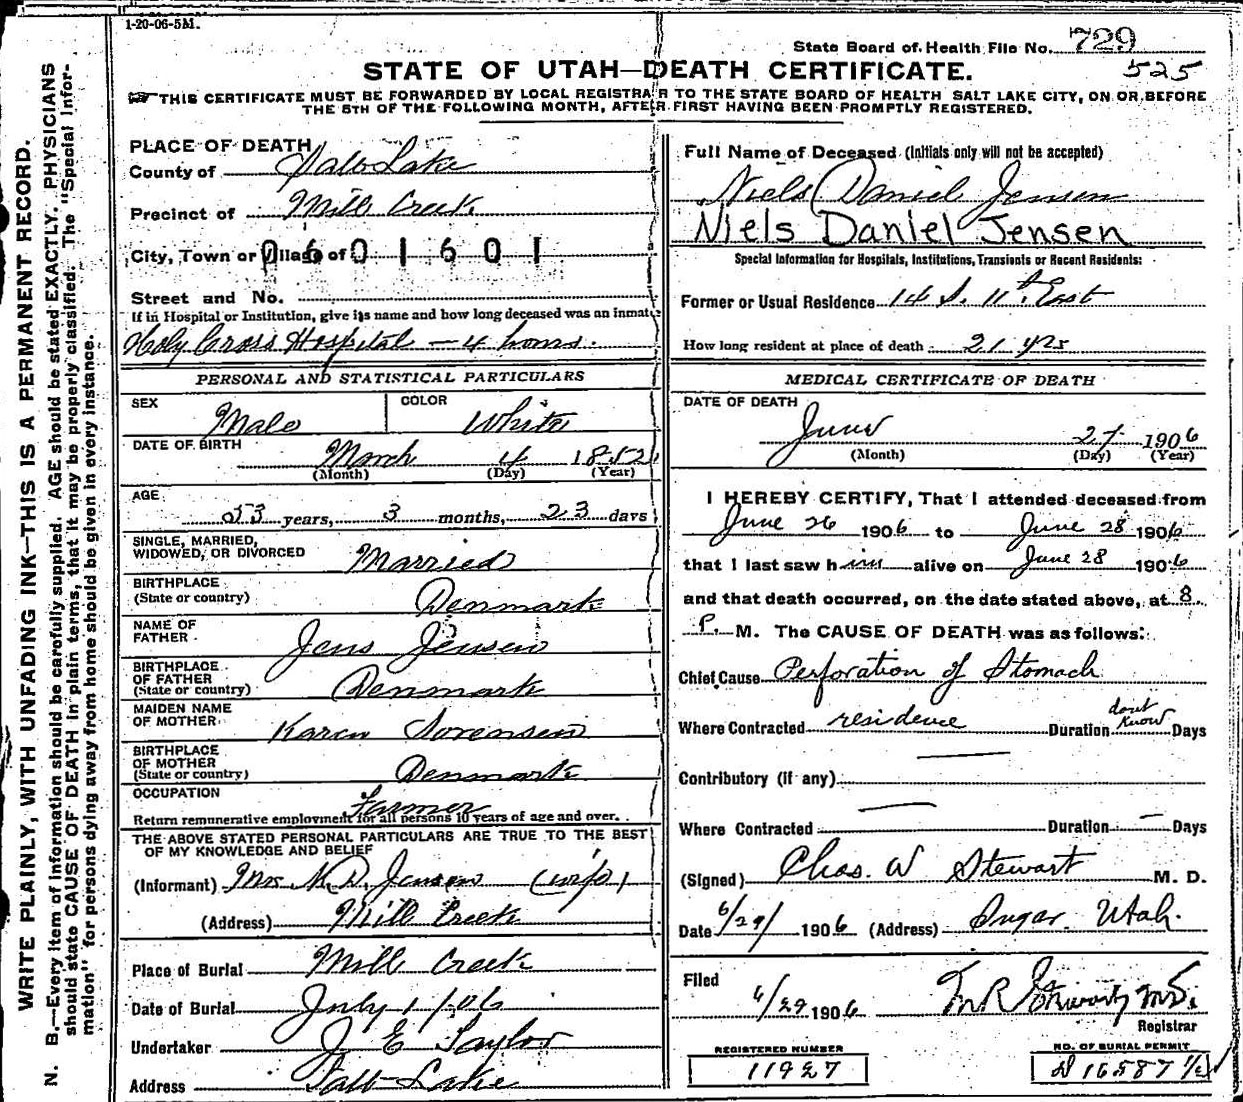 1-20-06-5M.
State Board of Health File No. 729
525
STATE OF UTAH—DEATH CERTIFICATE.
THIS CERTIFICATE MUST BE FORWARDED BY LOCAL REGISTRAR TO THE STATE BOARD OF HEALTH SALT LAKE CITY, ON OR BEFORE
THE 5TH OF THE FOLLOWING MONTH, AFTER FIRST HAVING BEEN PROMPTLY REGISTERED.
WRITE PLAINLY, WITH UNFADING INK—THIS IS A PERMANENT RECORD.
N. B.—Every item of information should be carefully supplied. AGE should be stated EXACTLY. PHYSICIANS
should state CAUSE OF DEATH in plain terms, that it may be properly classified. The "Special Infor-
mation" for persons dying away from home should be given in every instance.
PLACE OF DEATH
County of Salt Lake
Precinct of Mill Creek
City, Town or Village of 0601601
Street and No.
If in Hospital or Institution, give its name and how long deceased was an inmate
Holy Cross Hospital — 4 hours.
PERSONAL AND STATISTICAL PARTICULARS
SEX Male COLOR White
DATE OF BIRTH March 4 1852
(Month) (Day) (Year)
AGE 53 years, 3 months, 23 days
SINGLE, MARRIED,
WIDOWED, OR DIVORCED Married
BIRTHPLACE
(State or country) Denmark
NAME OF
FATHER Jens Jensen
BIRTHPLACE
OF FATHER
(State or country) Denmark
MAIDEN NAME
OF MOTHER Karen Sorensen
BIRTHPLACE
OF MOTHER
(State or country) Denmark
OCCUPATION Farmer
Return remunerative employment for all persons 10 years of age and over.
THE ABOVE STATED PERSONAL PARTICULARS ARE TRUE TO THE BEST
OF MY KNOWLEDGE AND BELIEF
(Informant) Mrs N. D. Jensen (wife)
(Address) Mill Creek
Place of Burial Mill Creek
Date of Burial July 1/06
Undertaker J E Taylor
Address Salt Lake
Full Name of Deceased (Initials only will not be accepted)
Niels Daniel Jensen
Niels Daniel Jensen
Special Information for Hospitals, Institutions, Transients or Recent Residents:
Former or Usual Residence 14 S. 11th East
How long resident at place of death 21 yrs
MEDICAL CERTIFICATE OF DEATH
DATE OF DEATH
June 27 1906
(Month) (Day) (Year)
I HEREBY CERTIFY, That I attended deceased from
June 26 1906 to June 28 1906
that I last saw him alive on June 28 1906
and that death occurred, on the date stated above, at 8
P. M. The CAUSE OF DEATH was as follows:
Chief Cause Perforation of Stomach
Where Contracted residence Duration dont know Days
Contributory (if any) —
Where Contracted — Duration — Days
(Signed) Chas. W Stewart M. D.
Date 6/29/ 1906 (Address) Sugar Utah.
Filed
6/29 1906
Registrar
REGISTERED NUMBER
11927
NO. OF BURIAL PERMIT
16587 1/2